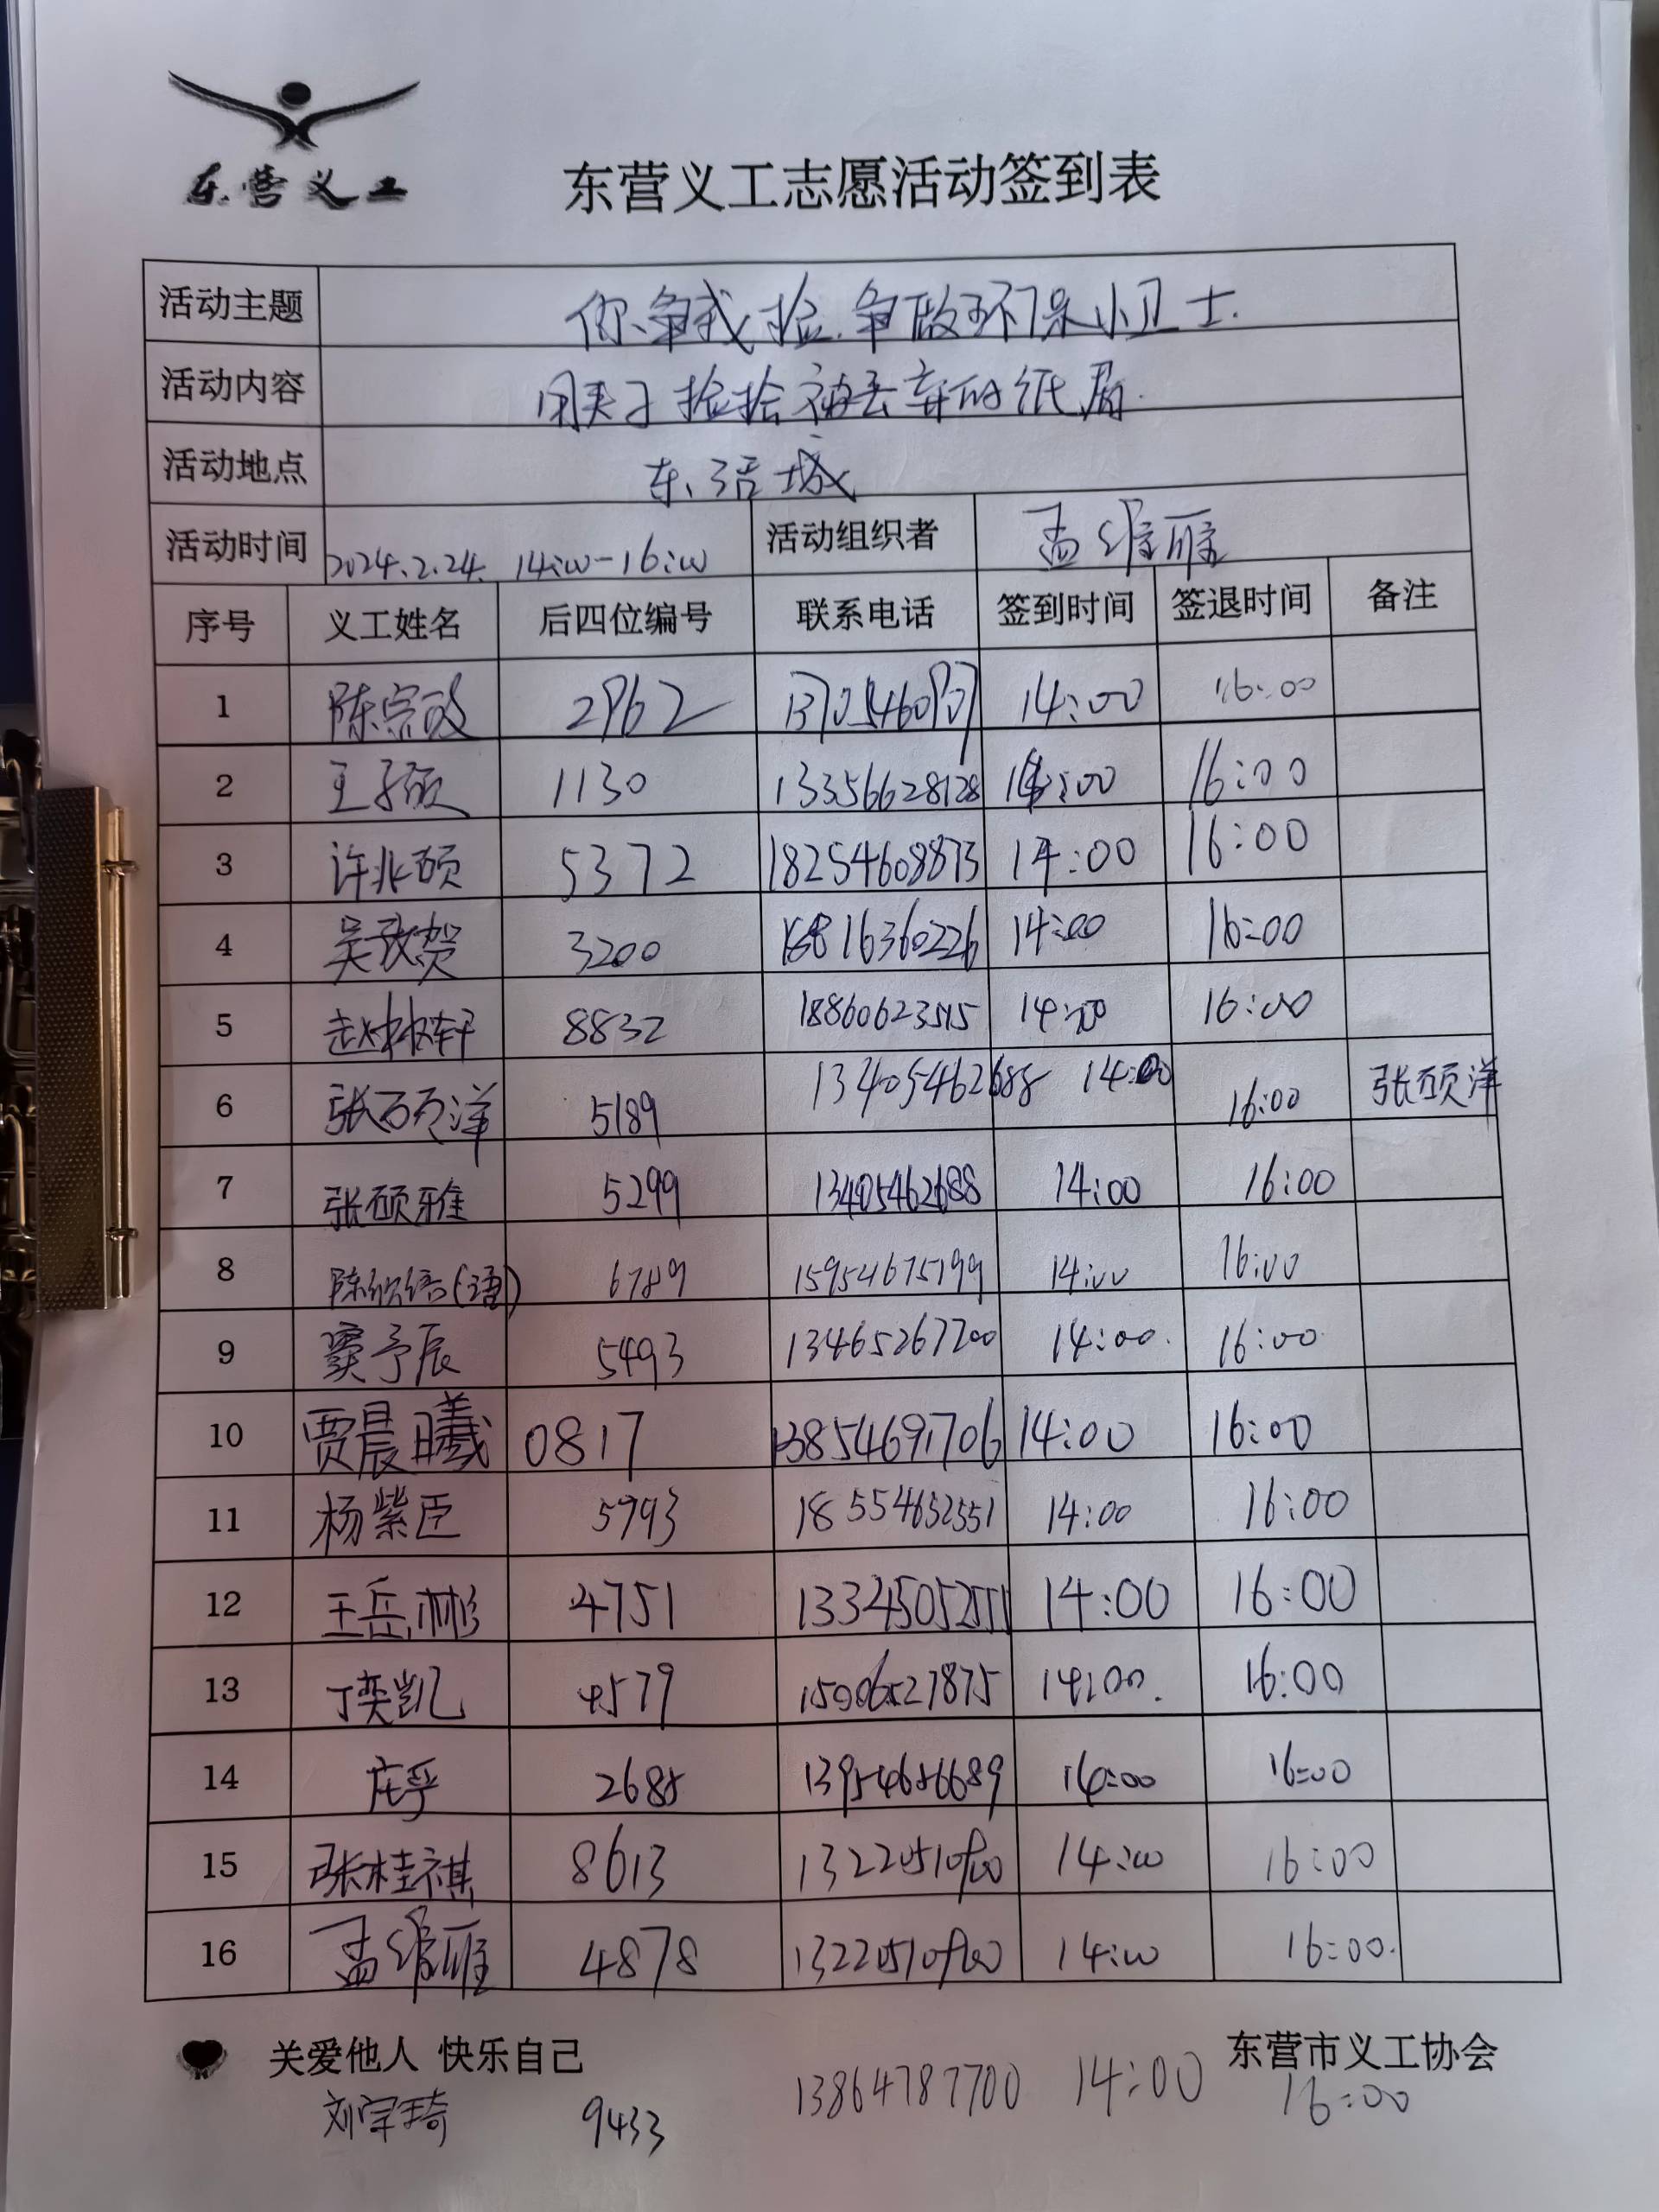 东营义工
东营义工志愿活动签到表
活动主题 你争我捡.争做环保小卫士.
活动内容 用夹子捡拾被丢弃的纸屑.
活动地点 东活城
活动时间 2024.2.24. 14:00-16:00 活动组织者 孟维雁
序号 义工姓名 后四位编号 联系电话 签到时间 签退时间 备注
1 陈宗政 2962 14:00 16:00
2 王子硕 1130 13356628128 14:00 16:00
3 许兆硕 5372 18254608873 14:00 16:00
4 吴政贺 3200 16360226 14:00 16:00
5 赵林轩 8832 18860623515 14:00 16:00
6 张硕洋 5189 13405462688 14:00 16:00 张硕洋
7 张硕雅 5299 13405462688 14:00 16:00
8 陈欣语(语) 6789 15954675199 14:00 16:00
9 窦予辰 5493 13465267200 14:00. 16:00
10 贾晨曦 0817 13854691706 14:00 16:00
11 杨紫臣 5793 18554652551 14:00 16:00
12 王岳彬 4751 13345052551 14:00 16:00
13 丁奕凯 4579 15006527875 14:00. 16:00
14 庄乎 2685 13954656689 14:00 16:00
15 张桂祺 8613 14:00 16:00
16 孟维雁 4878 14:00 16:00.
关爱他人 快乐自己 东营市义工协会
刘宇琦 9433 13864787700 14:00 16:00